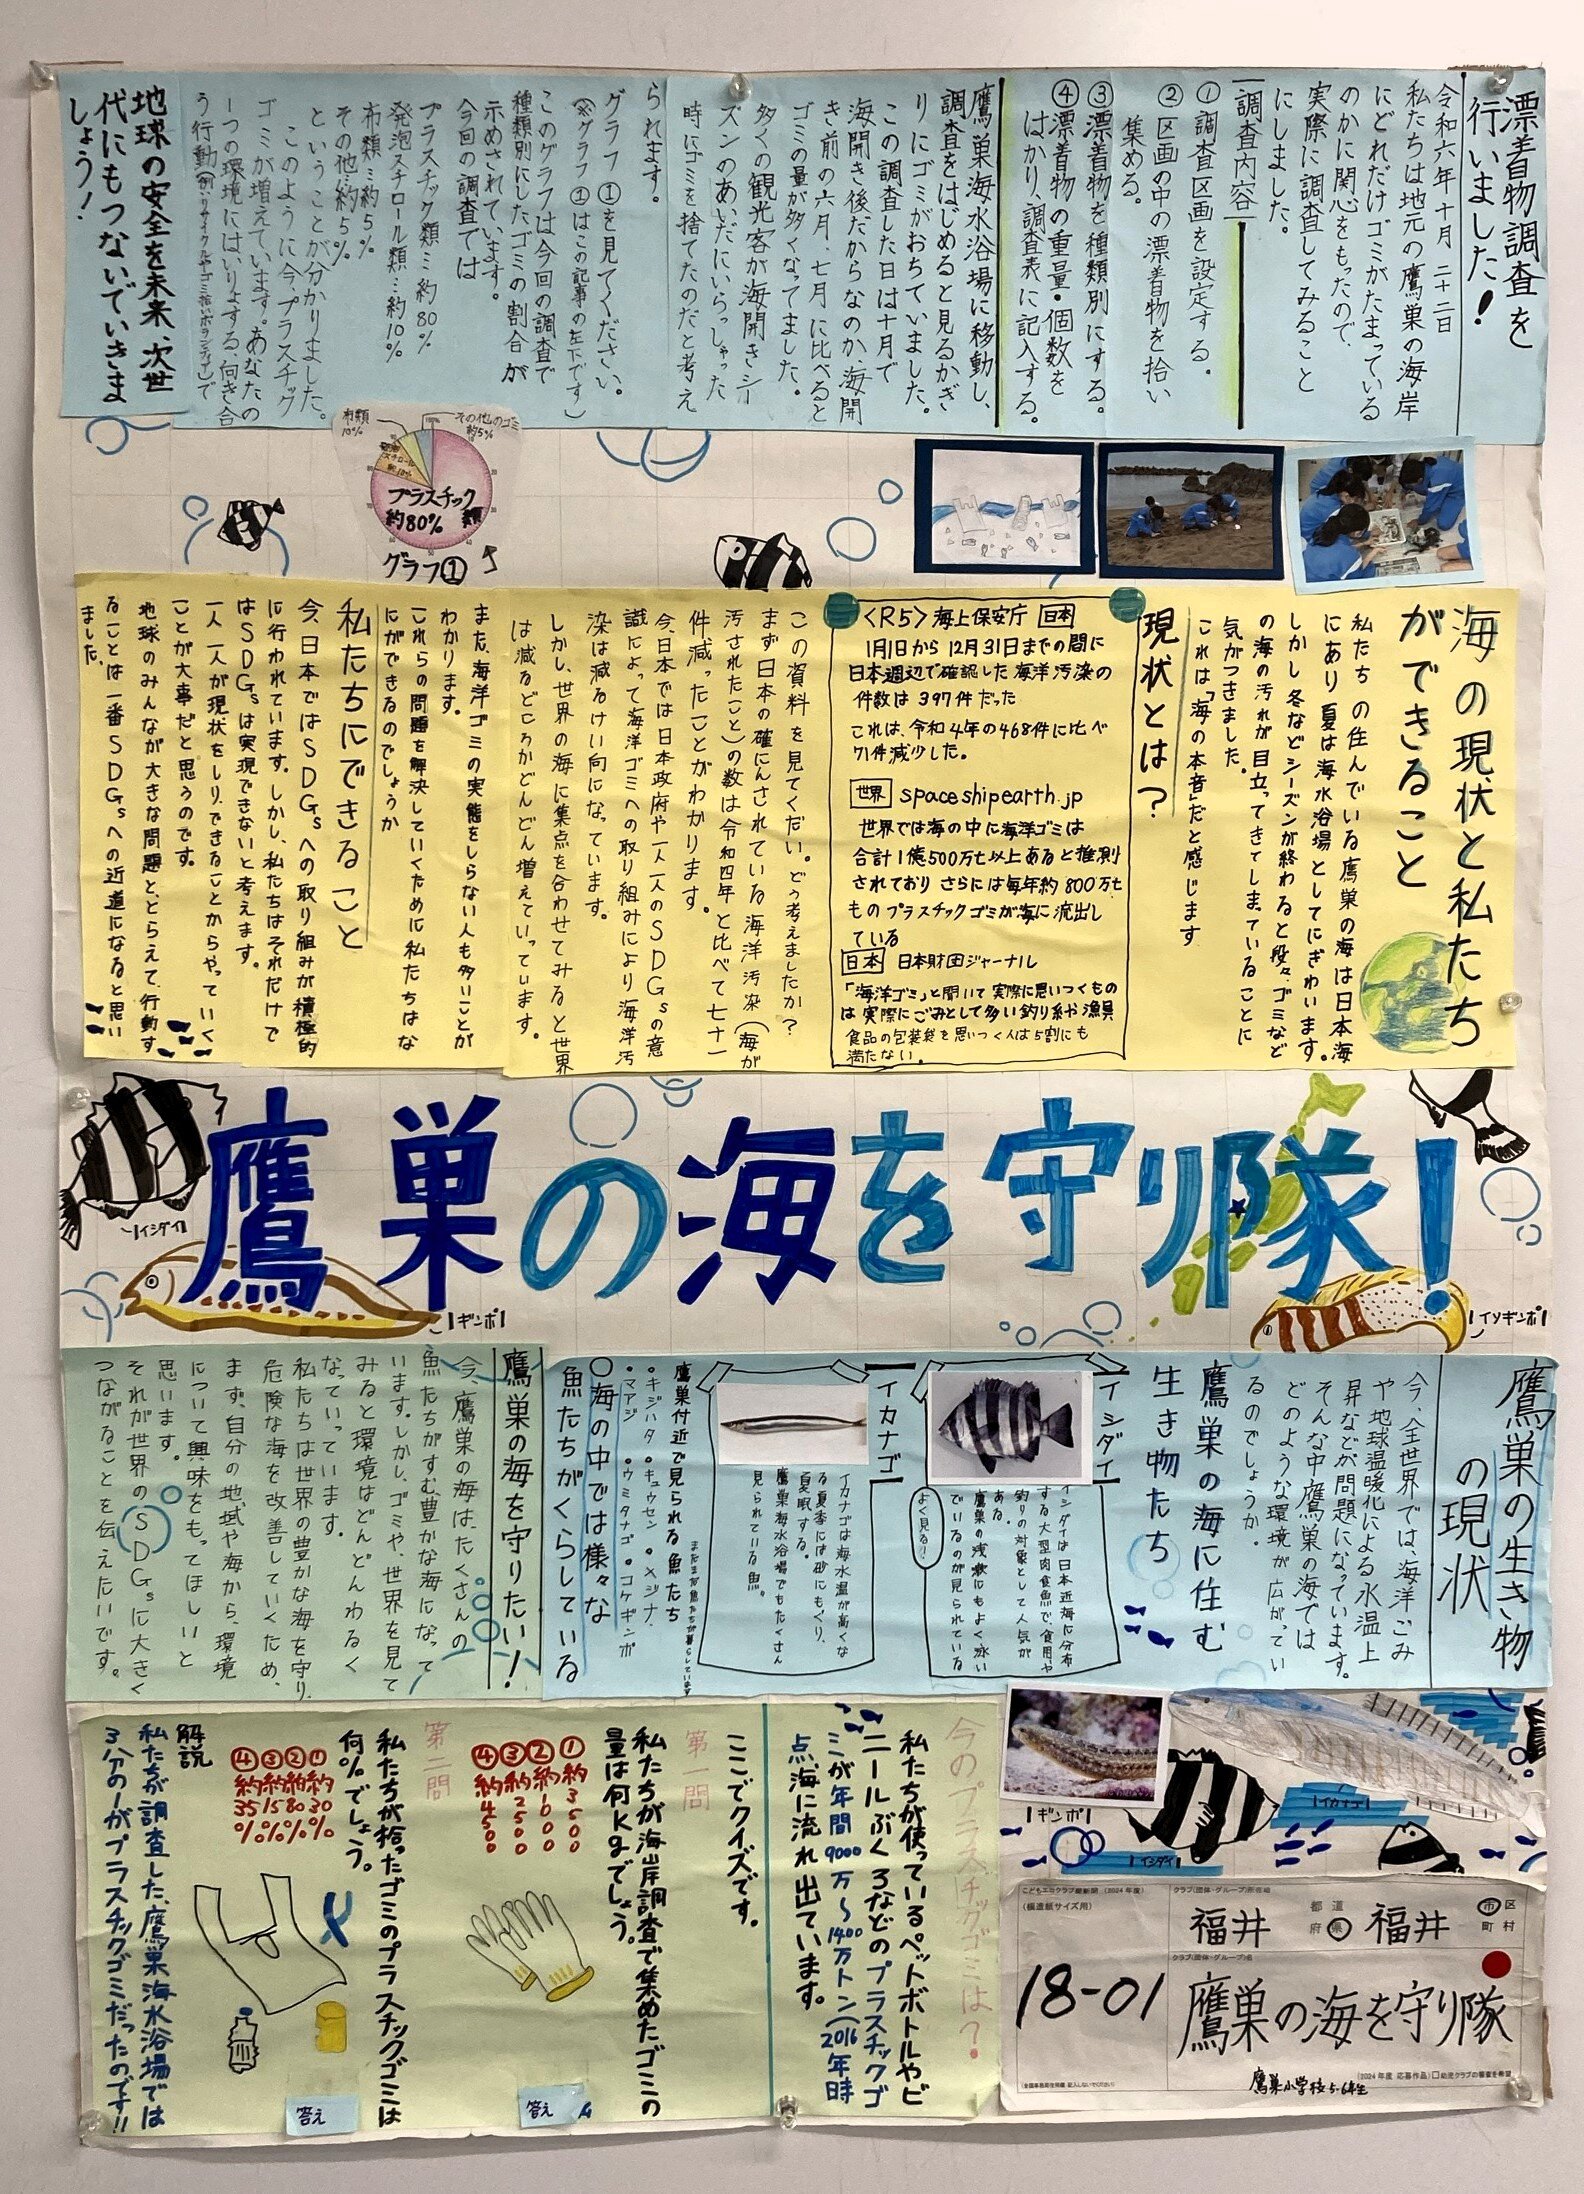 漂着物調査を
行いました！
令和六年十月二十二日
私たちは地元の鷹巣の海岸
にどれだけゴミがたまっている
のかに関心をもったので、
実際に調査してみること
にしました。
調査内容
①調査区画を設定する。
②区画の中の漂着物を拾い
集める。
③漂着物を種類別にする。
④漂着物の重量・個数を
はかり、調査表に記入する。
鷹巣海水浴場に移動し、
調査をはじめると見るかぎ
りにゴミがおちていました。
この調査した日は十月で
海開き後だからなのか、海開
き前の六月、七月に比べると
ゴミの量が多くなってました。
多くの観光客が海開きシー
ズンのあいだにいらっしゃった
時にゴミを捨てたのだと考え
られます。
グラフ①を見てください。
(※グラフ①はこの記事の左下です)
このグラフは今回の調査で
種類別にしたゴミの割合が
示めされています。
今回の調査では
プラスチック類…約80%
発泡スチロール類…約10%
布類…約5%
その他…約5%
ということが分かりました。
このように、今、プラスチック
ゴミが増えています。あなたの
一つの環境にはいりょする、向き合
う行動(例リサイクルやゴミ拾いボランティア)で
地球の安全を未来、次世
代にもつないでいきま
しょう！
布類
10%
その他のゴミ
約5%
プラスチック
類
約80%
グラフ①
海の現状と私たち
ができること
私たちの住んでいる鷹巣の海は日本海
にあり夏は海水浴場としてにぎわいます。
しかし冬などシーズンが終わると段々、ゴミなど
の海の汚れが目立ってきてしまっていることに
気がつきました。
これは「海の本音」だと感じます
現状とは？
〈R5〉海上保安庁 日本
1月1日から12月31日までの間に
日本週辺で確認した海洋汚染の
件数は397件だった
これは、令和4年の468件に比べ
71件減少した。
世界 spaceshipearth.jp
世界では海の中に海洋ゴミは
合計1億500万t以上あると推測
されており さらには毎年約800万t
ものプラスチックゴミが海に流出し
ている
日本 日本財団ジャーナル
「海洋ゴミ」と聞いて実際に思いつくもの
は実際にごみとして多い釣り糸や漁具
食品の包装袋を思いつく人は5割にも
満たない。
この資料を見てくだい。どう考えましたか？
まず日本の確にんされている海洋汚染(海が
汚されたこと)の数は令和四年と比べて七十一
件減ったことがわかります。
今、日本では日本政府や一人一人のSDGsの意
識によって海洋ゴミへの取り組みにより海洋汚
染は減るけい向になっています。
しかし、世界の海に集点を合わせてみると世界
は減るどころかどんどん増えていっています。
また、海洋ゴミの実態をしらない人も多いことが
わかります。
これらの問題を解決していくために私たちはな
にができるのでしょうか
私たちにできること
今、日本ではSDGsへの取り組みが積極的
に行われています。しかし、私たちはそれだけで
はSDGsは実現できないと考えます。
一人一人が現状をしり、できることからやっていく
ことが大事だと思うのです。
地球のみんなが大きな問題と、とらえて、行動す
ることは一番SDGsへの近道になると思い
ました。
鷹巣の海を守り隊！
イシダイ
ギンポ
イソギンポ
鷹巣の生き物
の現状
今、全世界では、海洋ごみ
や地球温暖化による水温上
昇などが問題になっています。
そんな中鷹巣の海では
どのような環境が広がってい
るのでしょうか。
鷹巣の海に住む
生き物たち
イシダイ
イシダイは日本近海に分布
する大型肉食魚で食用や
釣りの対象として人気が
ある。
鷹巣の浅瀬にもよく泳い
でいるのが見られている
よく見る！
イカナゴ
イカナゴは海水温が高くな
る夏季には砂にもぐり、
夏眠する。
鷹巣海水浴場でもたくさん
見られている魚。
鷹巣付近で見られる魚たち
・キジハタ ・キュウセン ・メジナ
・マアジ ・ウミタナゴ ・コケギンポ
まだまだ魚たちが暮らしています
○海の中では様々な
魚たちがくらしている
鷹巣の海を守りたい！
今、鷹巣の海は、たくさんの
魚たちがすむ、豊かな海になって
います。しかし、ゴミや、世界を見て
みると環境はどんどんわるく
なっていっています。
私たちは世界の豊かな海を守り、
危険な海を改善していくため、
まず、自分の地域や海から、環境
について興味をもってほしいと
思います。
それが世界のSDGsに大きく
つながることを伝えたいです。
ギンポ
イカナゴ
イシダイ
今のプラスチックゴミは？
私たちが使っているペットボトルやビ
ニールぶくろなどのプラスチックゴ
ミが年間900万〜1400万トン(2016年時
点)海に流れ出ています。
ここでクイズです。
第一問
私たちが海岸調査で集めたゴミの
量は何kgでしょう。
①約3500
②約1600
③約2500
④約4500
答え
第二問
私たちが拾ったゴミのプラスチックゴミは
何%でしょう。
①約30%
②約80%
③約15%
④約35%
答え
解説
私たちが調査した、鷹巣海水浴場では
3分の1がプラスチックゴミだったのです!!
こどもエコクラブ壁新聞(2024年度)
(模造紙サイズ用)
クラブ(団体・グループ)所在地
福井 都道府県 福井 市区町村
18-01
クラブ(団体・グループ)名
鷹巣の海を守り隊
鷹巣小学校5・6年生